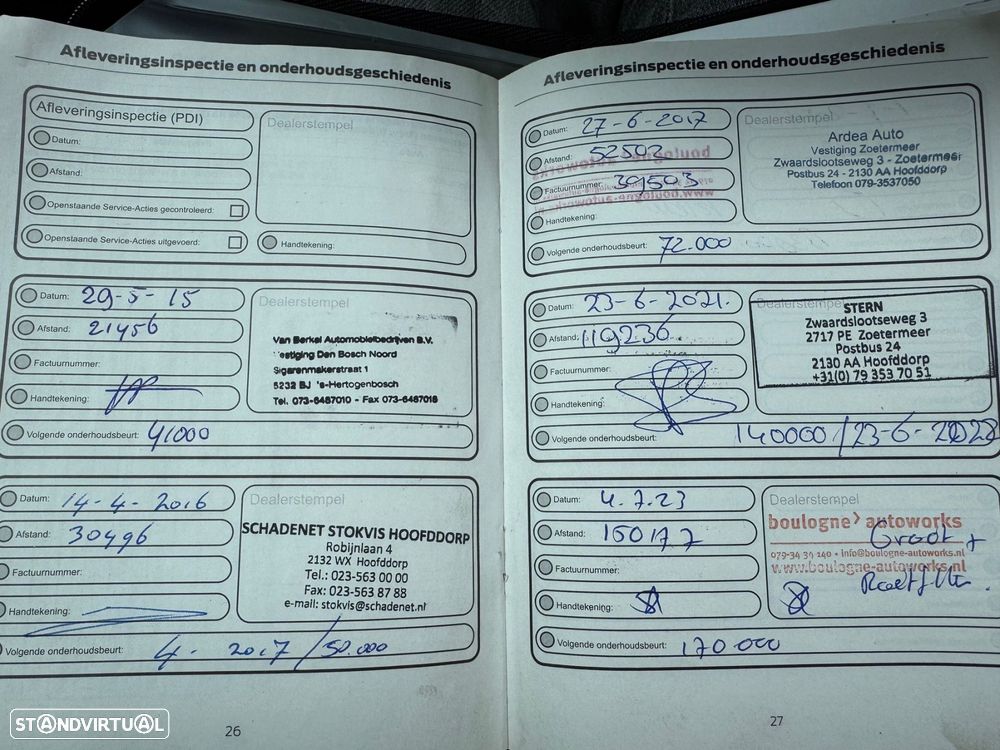 Afleveringsinspectie en onderhoudsgeschiedenis
Afleveringsinspectie (PDI)
Datum:
Afstand:
Openstaande Service-Acties gecontroleerd:
Openstaande Service-Acties uitgevoerd:
Dealerstempel
Handtekening:
Datum: 29-5-15
Afstand: 21456
Factuurnummer:
Handtekening:
Volgende onderhoudsbeurt: 41000
Dealerstempel
Van Berkel Automobielbedrijven B.V.
Vestiging Den Bosch Noord
Sigarenmakerstraat 1
5232 BJ 's-Hertogenbosch
Tel. 073-6487010 - Fax 073-6487018
Datum: 14-4-2016
Afstand: 30496
Factuurnummer:
Handtekening:
Volgende onderhoudsbeurt: 4-2017/50.000
Dealerstempel
SCHADENET STOKVIS HOOFDDORP
Robijnlaan 4
2132 WX Hoofddorp
Tel.: 023-563 00 00
Fax: 023-563 87 88
e-mail: stokvis@schadenet.nl
26
Afleveringsinspectie en onderhoudsgeschiedenis
Datum: 27-6-2017
Afstand: 52503
Factuurnummer: 391503
Handtekening:
Volgende onderhoudsbeurt: 72.000
Dealerstempel
Ardea Auto
Vestiging Zoetermeer
Zwaardslootseweg 3 - Zoetermeer
Postbus 24 - 2130 AA Hoofddorp
Telefoon 079-3537050
Datum: 23-6-2021.
Afstand: 119236
Factuurnummer:
Handtekening:
Volgende onderhoudsbeurt: 140000/23-6-2023
Dealerstempel
STERN
Zwaardslootseweg 3
2717 PE Zoetermeer
Postbus 24
2130 AA Hoofddorp
+31(0) 79 353 70 51
Datum: 4.7.23
Afstand: 150177
Factuurnummer:
Handtekening:
Volgende onderhoudsbeurt: 170.000
Dealerstempel
boulogne> autoworks
info@boulogne-autoworks.nl
www.boulogne-autoworks.nl
Groot +
27
STANDVIRTUAL